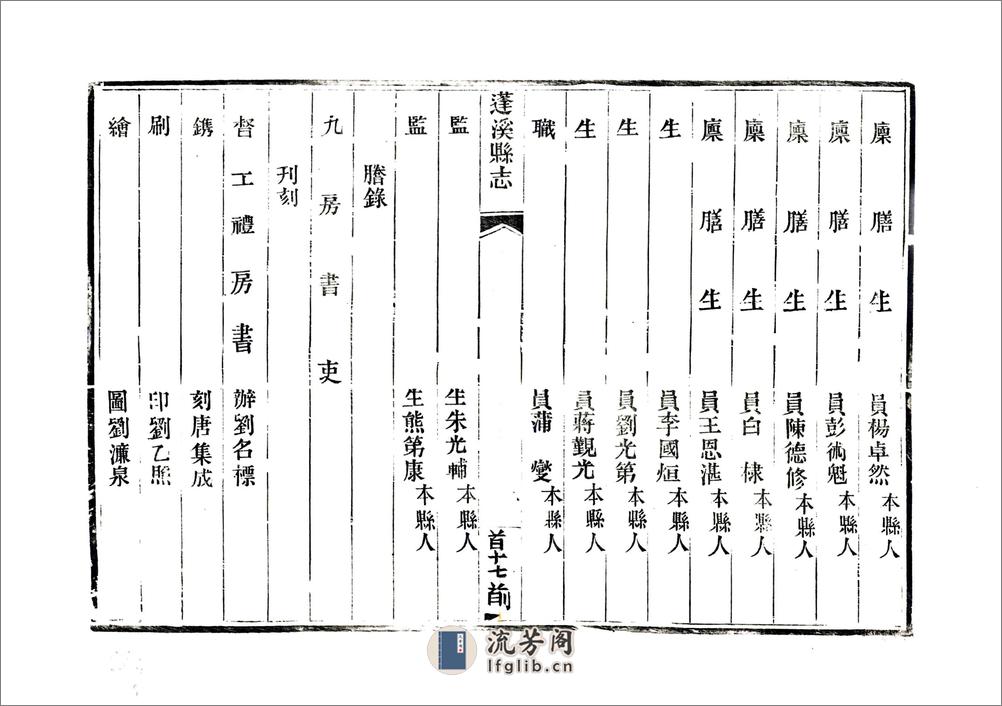 廩膳生員楊卓然本縣人
廩膳生員彭術魁本縣人
廩膳生員陳德修本縣人
廩膳生員白棣本縣人
廩膳生員王恩湛本縣人
生員李國烜本縣人
生員劉光第本縣人
生員蔣觀光本縣人
職員蒲燮本縣人
蓬溪縣志
首十七前
監生朱光輔本縣人
監生熊第康本縣人
謄錄
九房書吏
刋刻
督工禮房書辦劉名標
鐫刻唐集成
刷印劉乙照
繪圖劉濂泉
流芳阁
lfglib.cn